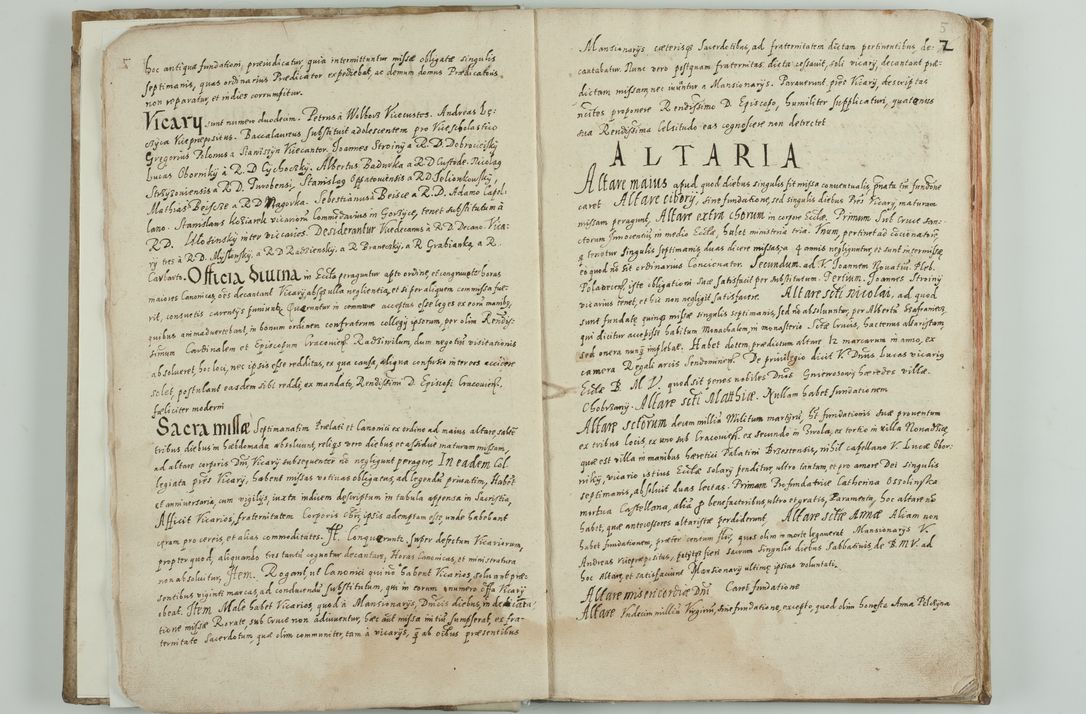 hoc antiquæ fundationi, præiudicatur, quia intermittuntur missæ obligatæ singulis
septimanis, quas ordinarius Prædicator expediebat, ac demum domus Prædicatoris,
non reparatur, et indies corrumpitur.
Vicarij sunt numero duodecim. Petrus à Wilborz Vicecustos. Andreas Łę-
czyca Vicepræpositus. Baccalaureus substituit adolescentem pro Viceschlastico
Gregorius Pilzmus a Staniszyn Vicecantor. Joannes Stroiny à R. D. Dobrocieski
Lucas Obornicky à R. D. Cychoczky. Albertus Badurka a R D Custode. Nicolaus
Strzyzoniensis à R. D. Stanislaus Opatouiensis à R D
Mathias à R. D. Nagorka. Sebestianus à à R. D. Adamo Capel-
lano. Stanislaus Koziarek vicarium Commendarius in Gorzyce, tenet substitutum à
R. D. inter viccarios. Desiderantur Vicedecanus à R. D. Decano. Vica-
ry tres à R. D. Myszensky, a R D Radzienski, a R Branecky, a R Grabianka, a R.
Officia Diuina, in Eccla peraguntur apto ordine, et congruente horas
maiores Canonicas, oēs decantant Vicarij absq ulla neglientia, et si per aliquem commissa fue-
rit, consuetis carentijs puniuntur. Quæruntur in commune acceptas esse leges ex eorū manibus,
quibus animaduertebant, in bonum ordinem confratrum collegij ipsorum, per olim Reuerendis-
simum Cardinalem et Episcopum Cracouien Radziuilum, dum negotiū visitationis
absolueret, hoc loci, nec ipsis esse redditas, ex qua causa, aliqua confusio inter eos accidere
solet, postulant easdem sibi reddi, ex mandato, Rendissimi D. Episcopi Cracouien.
fæliciter moderni
Sacra missæ Septimanatim Prælati et Canonici ex ordine ad maius altare saltē
tribus diebus in hæbdomada absoluunt, reliqs vero diebus et assiduæ maturam missam,
ad altare corporis Dni, Vicarij subsequenter nō negligunt peragere. In eadem Col-
legiata pres Vicarij, habent missas votiuas obligatas, ad legendū priuatim, Habet
et anniuersaria, cum vigilijs, iuxta indicem descriptum in tabula appensa in Sacristia,
Afficit Vicarios, fraternitatem Corporis Chri, ipsis ademptam esse, unde habebant
ceram pro cereis, et alias commoditates. It. Conquerunt, super defectum Vicariorum,
propter quod, aliquando tres tantū coguntur decantare, Horas Canonicas, et ministratura
non absoluitur, Item. Rogant, ut Canonici qui nō habent Vicarios, soluant præ-
sentibus viginti marcas, ad conducendū substitutum, qui in eorum numero offa Vicarij
obeat. Item Male habet Vicarios, quod à Mansionarijs, Dnicis diebus, in decanta-
tione missæ Rorate sub Cruce non adiuuentur, hæc aūt missa initiū sumpserat, ex fra-
ternitate Sacerdotum quæ olim communiter, tam à vicarijs, q ab oibus præsentibus
5
2
Mansionarijs cæterisq Sacerdotibus, ad fraternitatem dictam pertinentibus, de-
cantabatur. Nunc vero postquam fraternitas, dicta cessauit, soli vicarij, decantant præ-
dictam missam, nec iuuantur a Mansionarijs. Parauerunt, pres Vicarij, descriptas
proponere Rendissimo D. Episcopo, humiliter supplicaturi, quatenus
sua Rendissima Celsitudo eas cognoscere non detrectet
ALTARIA
Altare maius apud quod diebus singulis fit missa conuentualis, fundōne
caret. Altare ciborij, sine fundatione, sed singulis diebus Pres Vicarij maturam
missam peragunt. Altare extra chorum in corpore Ecclæ. Primum. Sub Cruce Sanc-
ctorum Innocentiū, in medio Ecclæ, habet ministeria tria. Vnum, pertinet ad cōcionatorē,
q tenetur singulis septimanis, duas dicere missas, q omnes negliguntur, et sunt intermissæ,
eo quod nō sit ordinarius Concionator. Secundum, ad V. Joannem Nouatiū Pleb.
iste obligationi suæ satisfacit per substitutum. Tertium. Joannes Stroiny
vicarius tenet, et hic non negligit satisfacere. Altare scti nicolai, ad quod
sunt fundatæ quinq missæ singulis septimanis, sed nō absoluuntur, per Albertū Kraframek,
qui dicitur accepisse habitum Monachalem, in monasterio Sctæ Crucis, hactenus altaristam
sed onera nunq implebat. Habet dotem, prædictum altare 12 marcarum in anno, ex
camera Regali arcis Sendomirien. De priuilegio dicit V. Dnus Lucas vicarij
Ecclæ B. M. V. quod sit penes nobiles Dnos Gnieworiouij hæredes villæ.
Chobrzanij. Altare scti Matthiæ. Nullam habet fundationem
Altare sctorum decem milliū Militum martyrū, hēt fundationis suæ prouentum
ex tribus locis, ex uno sub Cracouien, ex secundo in Zwola, ex tertio in villa Konadkice,
quæ est villa in manibus hæretici Palatini Brzestensis, nihil capellano V. Lucæ Obor-
nicky, vicario istius Ecclæ solarij penditur, ultro tantum, et pro amore Dei singulis
septimanis, absoluit duas lectas. Primam Profundatrice Catherina Ossolinska
mortua Castellana, aliā p benefactoribus, ultro et gratis, Paramenta, hoc altare nō
habet, quæ antecessores altaristæ perdiderunt. Altare sctæ Annæ Aliam non
habet fundationem, præter centum flor, quos olim in morte legauerat Mansionarijs V.
Andreas vicepræpositus, petijtq fieri sacrum singulis diebus Sabbatiuis de B. M. V. ad
hoc Altare, et satisfaciunt Mansionarij ultimæ ipsius voluntati.
Altare misericordiæ Dni Caret fundatione
Altare Vndecim milliū Virginū, sine fundatione, excepto, quod olim honesta Anna